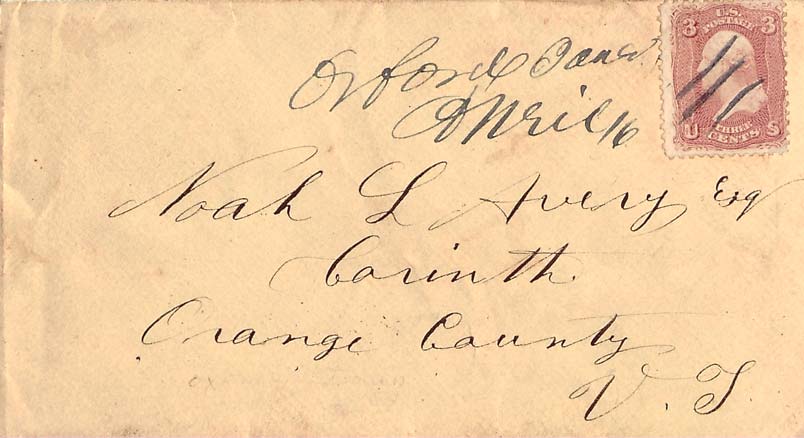 Orford
April 16
U.S.
POSTAGE
3 3
THREE
CENTS
U S
Noah L Avery Esq
Corinth.
Orange County
V. T.